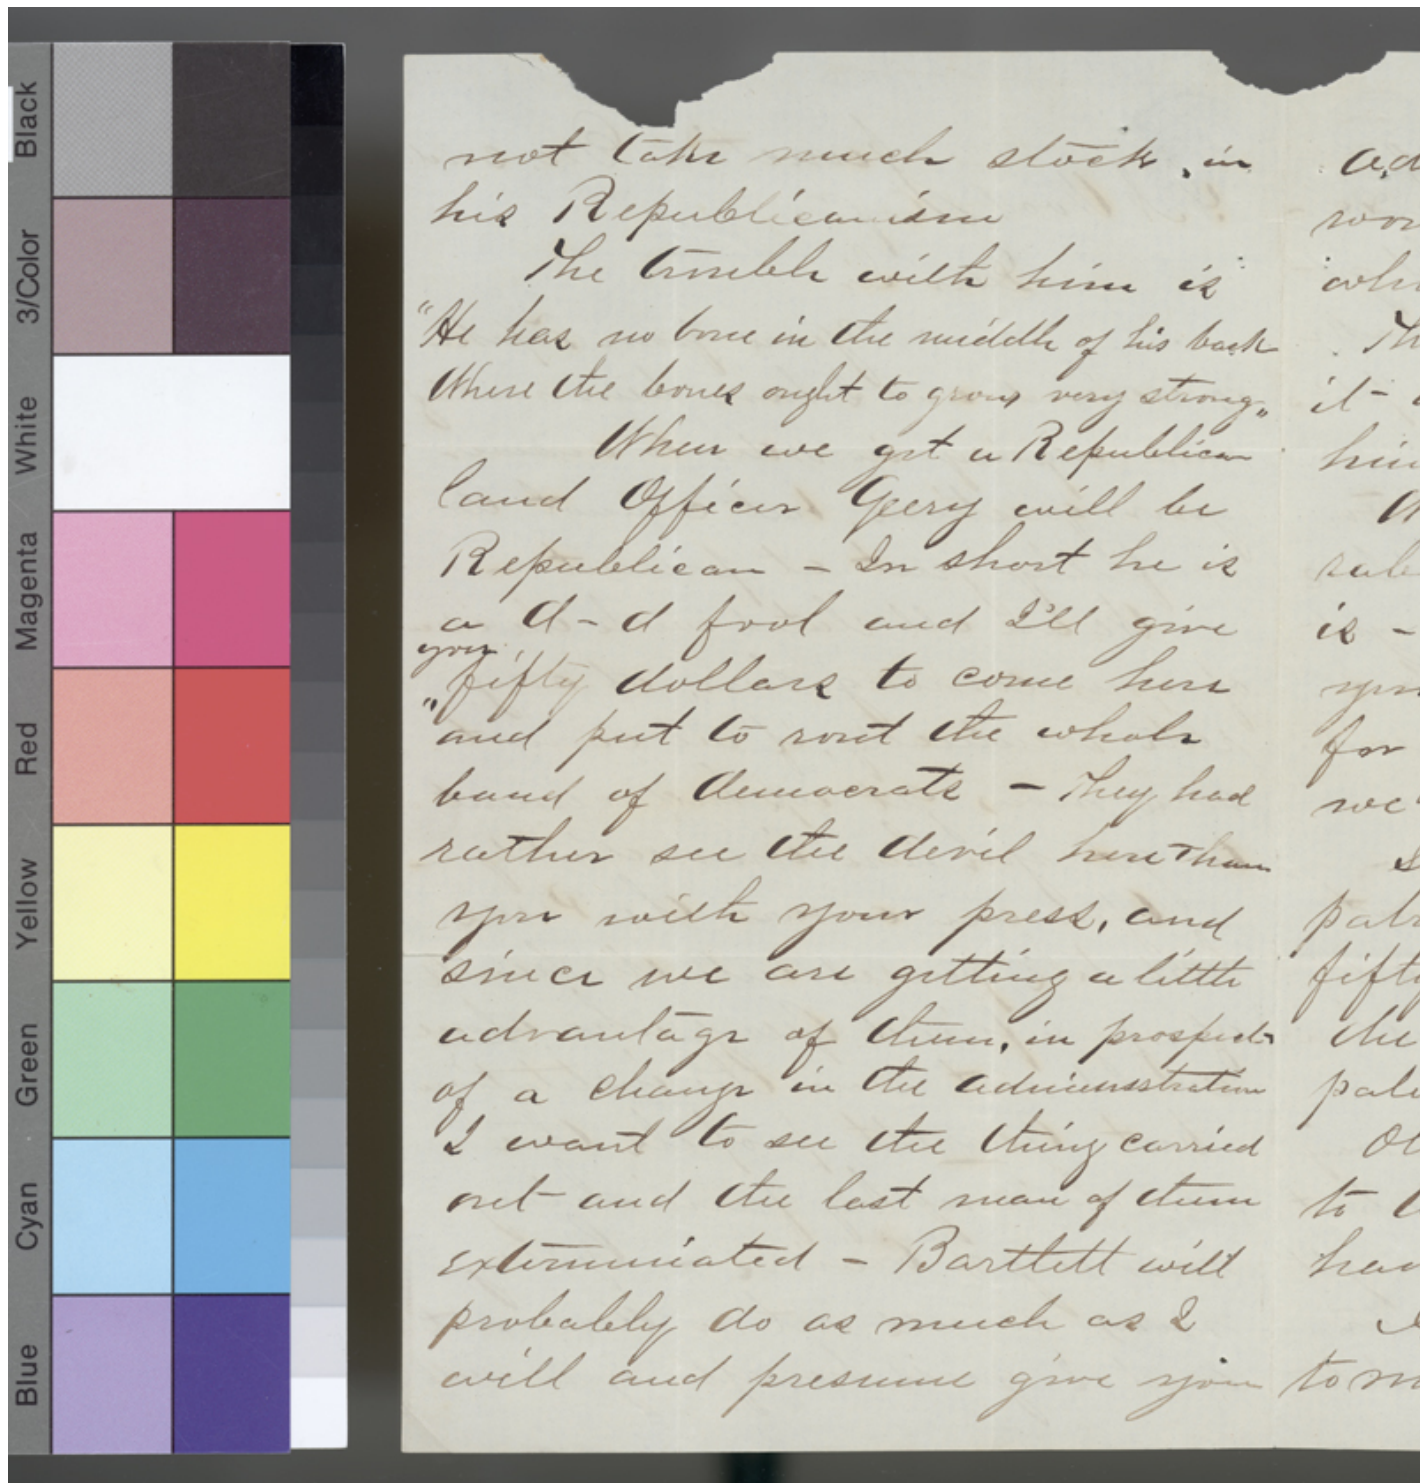 Black
3/Color
White
Magenta
Red
Yellow
Green
Cyan
Blue
not take much stock, in
his Republicanism
The trouble with him is
"He has no bone in the middle of his back
Where the bones ought to grow very strong"
When we get a Republican
land Officer Geery will be
Republican - In short he is
a d-d fool and I'll give
you
fifty dollars to come here
and put to rout the whole
band of democrats - They had
rather see the devil here than
you with your press, and
since we are getting a little
advantage of them, in prospect
of a change in the administration
I want to see the thing carried
out and the last man of them
exterminated - Bartlett will
probably do as much as I
will and presume give you
it -
is -
for
fifty
the
to